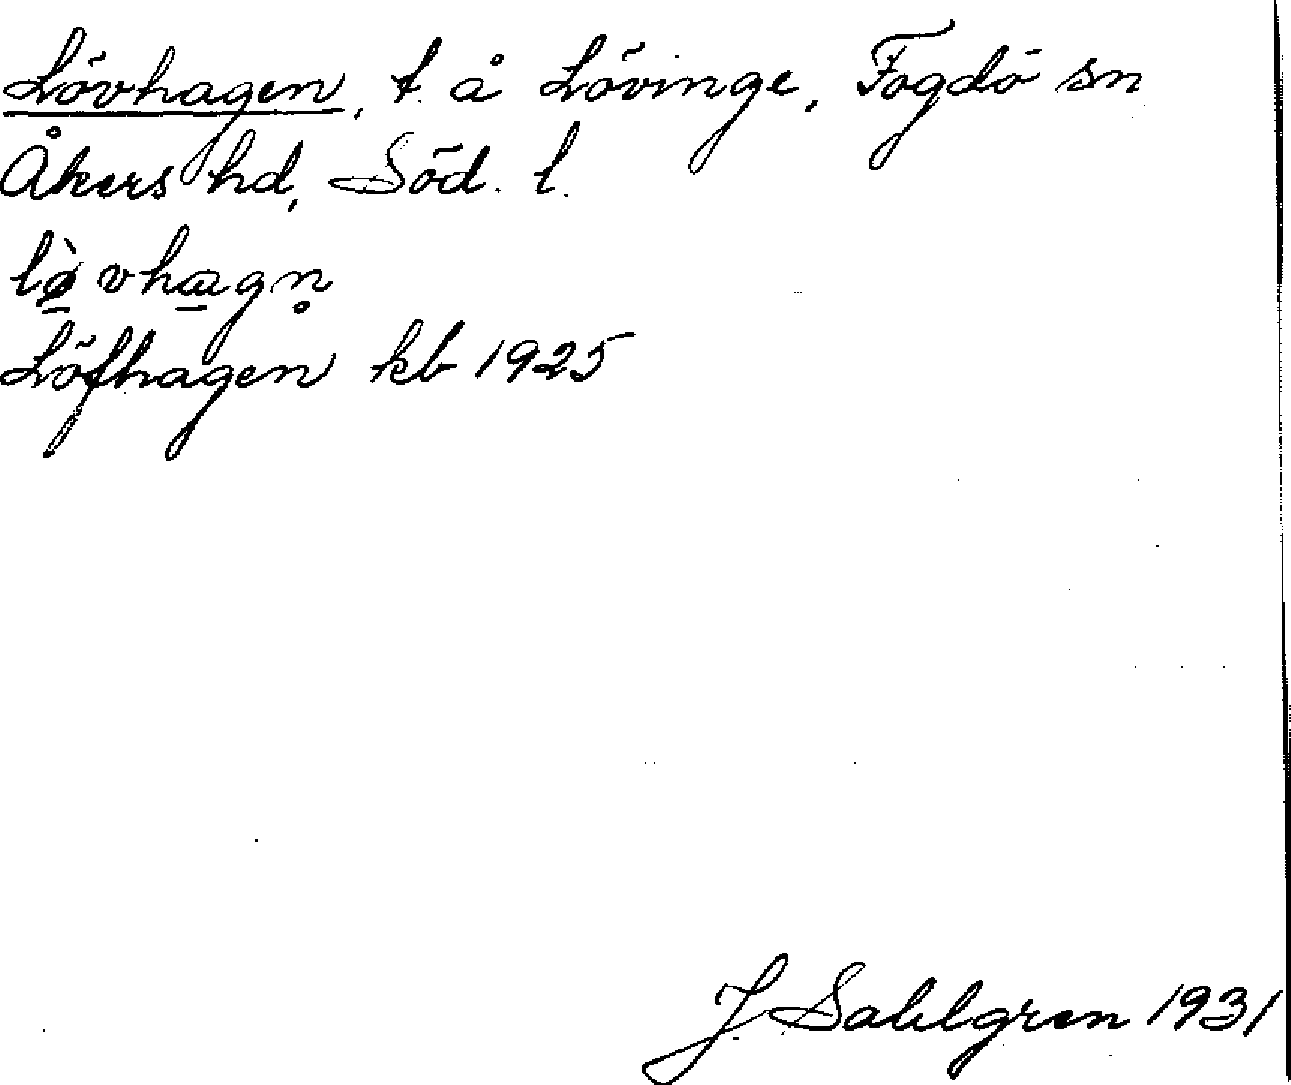 Lövhagen, t. å Lövinge, Fogdö sn
Åkers hd, Söd. l.
lø̠̀vha̠gn̥
Löfhagen kb 1925
J. Sahlgren 1931